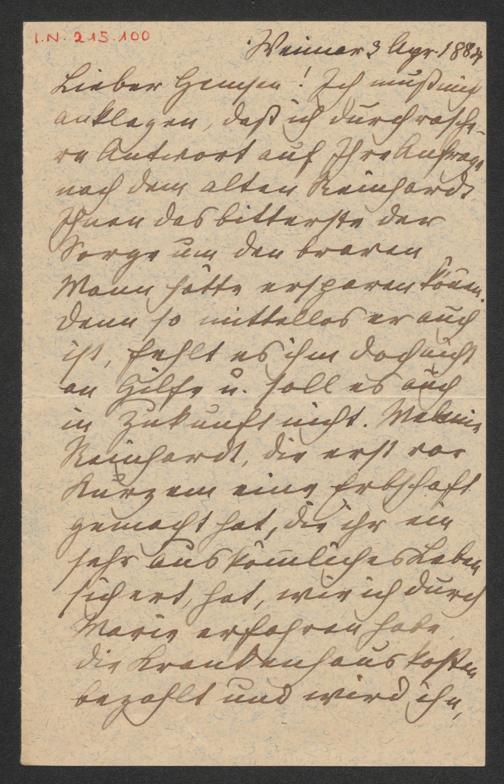 I.N. 215.100
Weimar 3 Apr. 188
Lieber Hemsen! Ich muß mich
anklagen, daß ich durch rasche-
re Antwort auf Ihre Anfrage
nach dem alten Reinhardt
Ihnen das bitterste der
Sorge um den braven
Mann hätte ersparen können.
Denn so mittellos er auch
ist, fehlt es ihm doch nicht
an Hilfe u. soll es auch
in Zukunft nicht.
Reinhardt, die erst vor
Kurzem eine Erbschaft
gemacht hat, die ihr ein
sehr auskömmliches Leben
sichert, hat, wie ich durch
Marie erfahren habe,
die Krankenhauskosten
bezahlt und wird ihn,